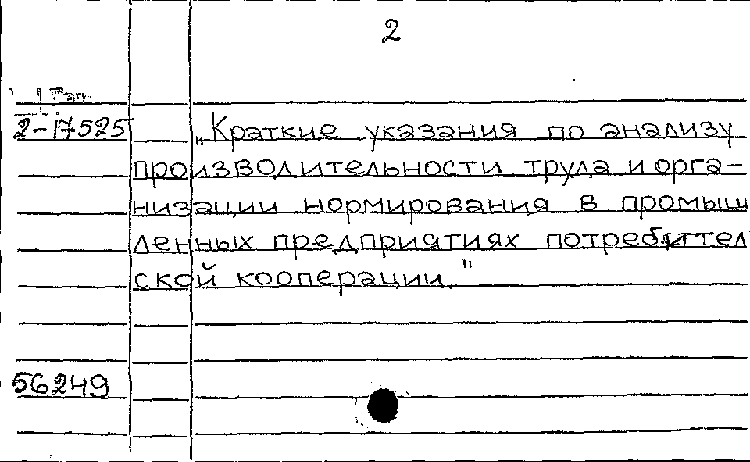 2
2-17525
„Краткие указания по анализу
производительности труда и орга-
низации нормирования в промыш
ленных предприятиях потребител
ской кооперации."
56249